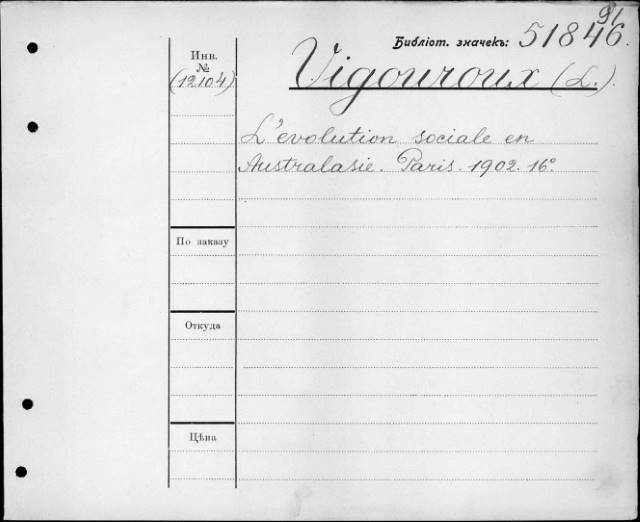 91
Библіот. значекъ: 51846.
Инв.
№
(12104)
Vigouroux (L.).
L'évolution sociale en
Australasie. Paris. 1902. 16º.
По заказу
Откуда
Цѣна